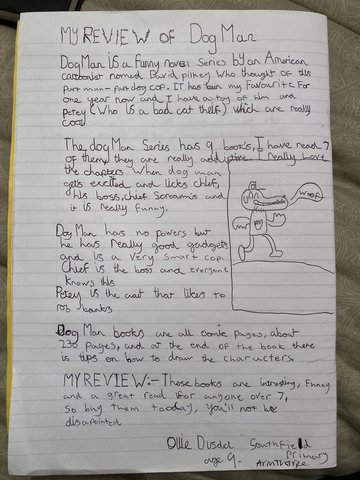 MY REVIEW OF Dog Man
Dog Man is a Funny novel series by an American
cartoonist named David pilkey who thought of this
part man - part dog cop. IT has been my Favourite For
one year now and I have a toy of him and
petey (who is a bad cat theif) which are really
cool
The dog Man Series has 9 books, I have read 7
of them, they are really addictive. I really love
the chapters when dog man
gets excited and licks chief,
his boss, chief Screamis and
it is really funny.
woof
Dog Man has no powers but
he has really good gadgets
and is a very smart cop.
Chief is the boss and everyone
knows this
Petey is the cat that likes to
rob banks
Dog Man books are all comic pages, about
230 pages, and at the end of the book there
is tips on how to draw the characters.
MY REVIEW:- These books are interesting, Funny
and a great read for anyone over 7,
so buy them today, you'll not be
disapointed
Ollie Dusdel Southfield
Primary
age 9. Armthorpe